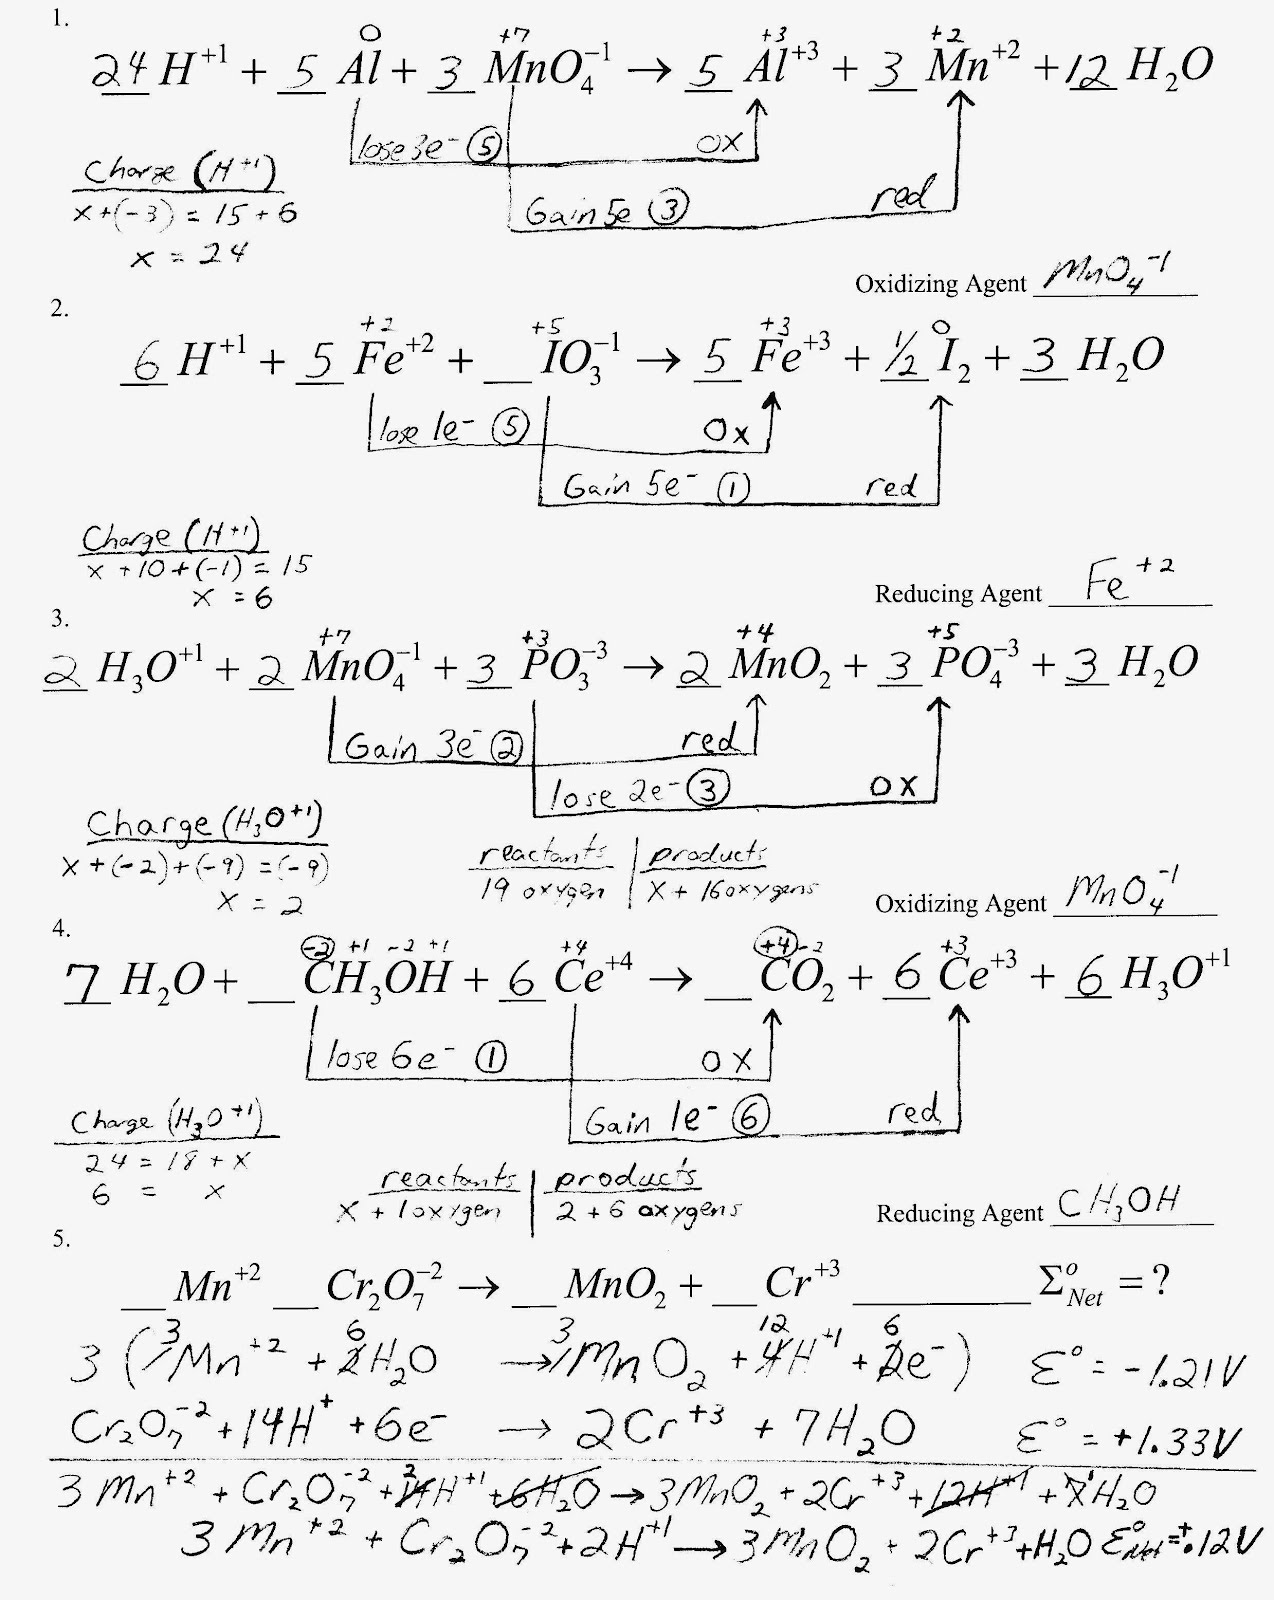 1.
0 +7 +3 +2
24 H⁺¹ + 5 Al + 3 MnO₄⁻¹ → 5 Al⁺³ + 3 Mn⁺² + 12 H₂O
lose 3e⁻ (5) ox
Charge (H⁺¹)
x + (-3) = 15 + 6
Gain 5e (3) red
x = 24
Oxidizing Agent MnO₄⁻¹
2.
+2 +5 +3 0
6 H⁺¹ + 5 Fe⁺² + __ IO₃⁻¹ → 5 Fe⁺³ + ½ I₂ + 3 H₂O
lose 1e⁻ (5) Ox
Gain 5e⁻ (1) red
Charge (H⁺¹)
x + 10 + (-1) = 15
x = 6
Reducing Agent Fe⁺²
3.
+7 +3 +4 +5
2 H₃O⁺¹ + 2 MnO₄⁻¹ + 3 PO₃⁻³ → 2 MnO₂ + 3 PO₄⁻³ + 3 H₂O
Gain 3e⁻ (2) red
lose 2e⁻ (3) ox
Charge (H₃O⁺¹)
x + (-2) + (-9) = (-9)
x = 2
reactants | products
19 oxygen | x + 16 oxygens
Oxidizing Agent MnO₄⁻¹
4.
(-2) +1 -2 +1 +4 (+4) -2 +3
7 H₂O + __ CH₃OH + 6 Ce⁺⁴ → __ CO₂ + 6 Ce⁺³ + 6 H₃O⁺¹
lose 6e⁻ (1) ox
Gain 1e⁻ (6) red
Charge (H₃O⁺¹)
24 = 18 + x
6 = x
reactants | products
x + 1 oxygen | 2 + 6 oxygens
Reducing Agent CH₃OH
5.
__ Mn⁺² __ Cr₂O₇⁻² → __ MnO₂ + __ Cr⁺³ ________ Σ°Net = ?
3 6 3 12 6
3 (1Mn⁺² + 2H₂O → 1MnO₂ + 4H⁺¹ + 2e⁻) Ɛ° = -1.21V
Cr₂O₇⁻² + 14H⁺ + 6e⁻ → 2Cr⁺³ + 7H₂O Ɛ° = +1.33V
3 Mn⁺² + Cr₂O₇⁻² + 2 14H⁺¹ + 6H₂O → 3MnO₂ + 2Cr⁺³ + 12H⁺¹ + 7 1 H₂O
3 Mn⁺² + Cr₂O₇⁻² + 2H⁺¹ → 3MnO₂ + 2Cr⁺³ + H₂O Ɛ°Net = +.12V